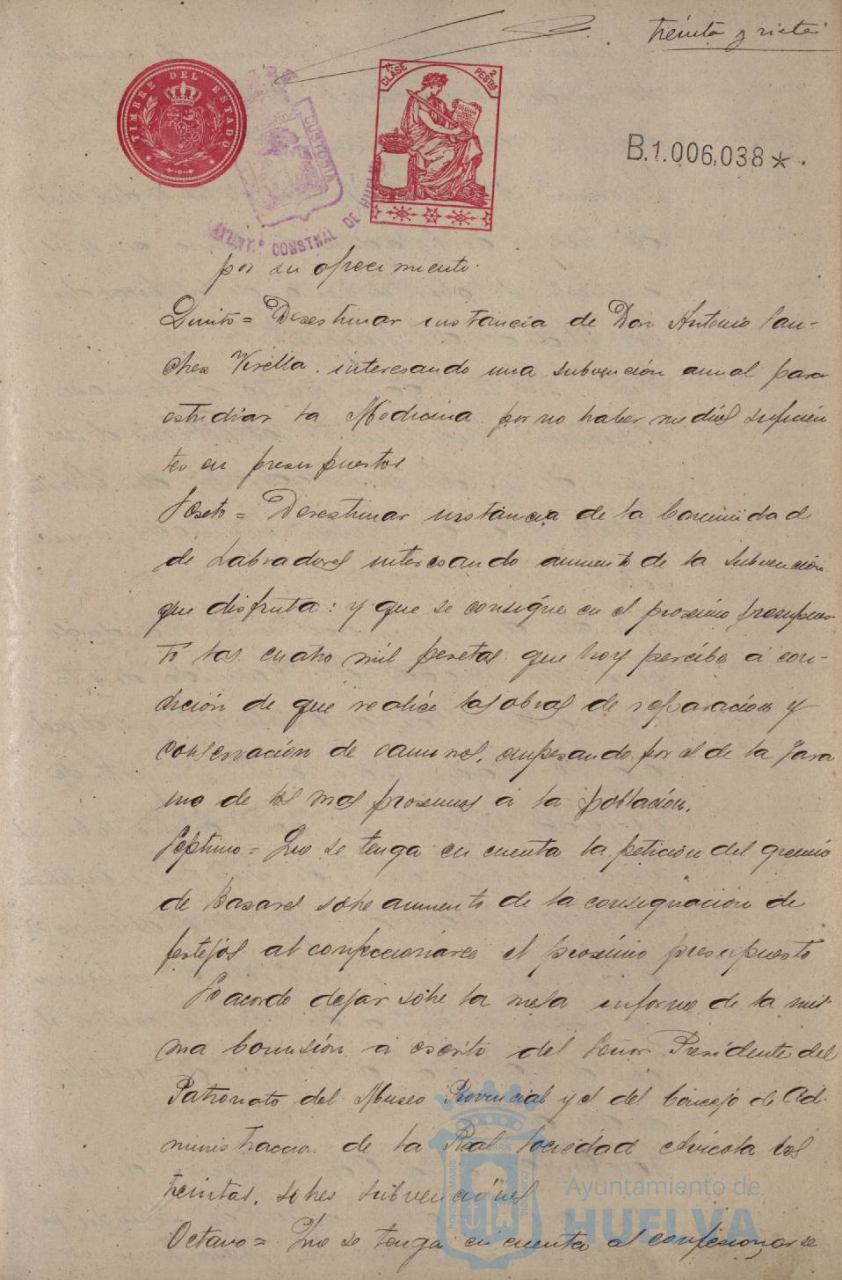 treinta y siete
TIMBRE DEL ESTADO
7ª CLASE 2 PESETAS
CUSTODIA
AYUNT.º CONSTNAL DE HUELVA
B.1.006,038*.
por su ofrecimiento.
Quinto= Desestimar instancia de Don Antonio San-
chez interesando una subvención anual para
estudiar la Medicina por no haber medios suficien
tes en presupuestos
Sexto= Desestimar instancia de la Comunidad
de Labradores interesando aumento de la subvención
que disfruta: y que se consigne en el proximo presupues-
to las cuatro mil pesetas que hoy percibe a con-
dición de que realice las obras de reparacion y
conservación de caminos, empezando por el de la
no de los mas proximos a la población.
Septimo= Que se tenga en cuenta la petición del gremio
de Bazares sobre aumento de la consignación de
festejos al confeccionarse el proximo presupuesto
Se acordo dejar sobre la mesa informe de la mis
ma Comisión a escrito del Señor Presidente del
Patronato del Museo Provincial y el del Consejo de Ad-
ministraccion de la Real Sociedad los
treintas, sobres subvenciones
Octavo= Que se tenga en cuenta al confeccionarse
Ayuntamiento de
HUELVA